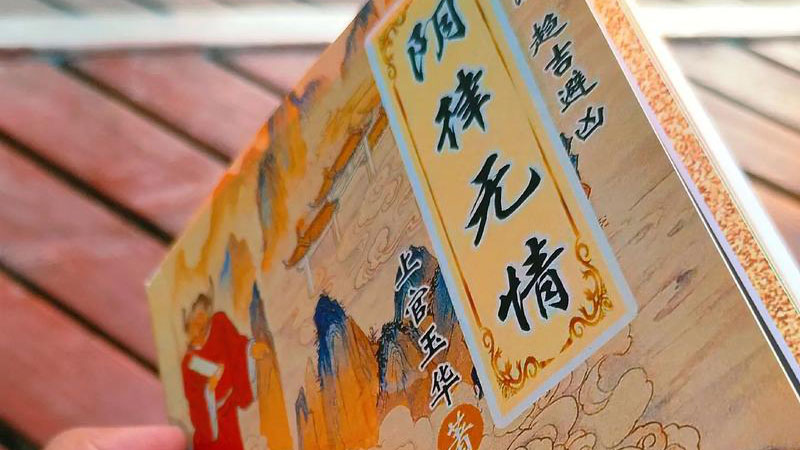 趋吉避凶
阴律无情
上官玉华 著